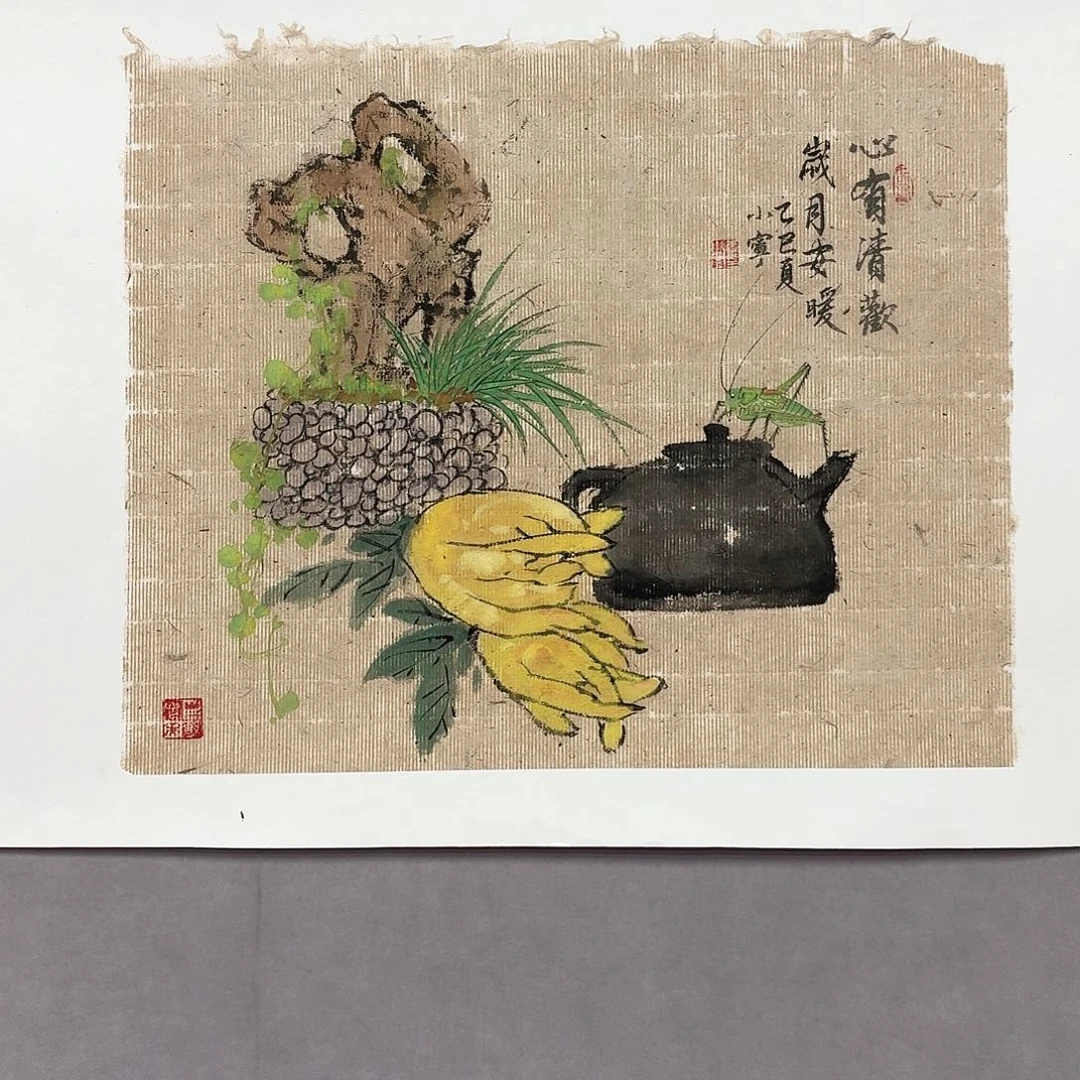 心有清歡
歲月安暖
乙巳夏
小寧